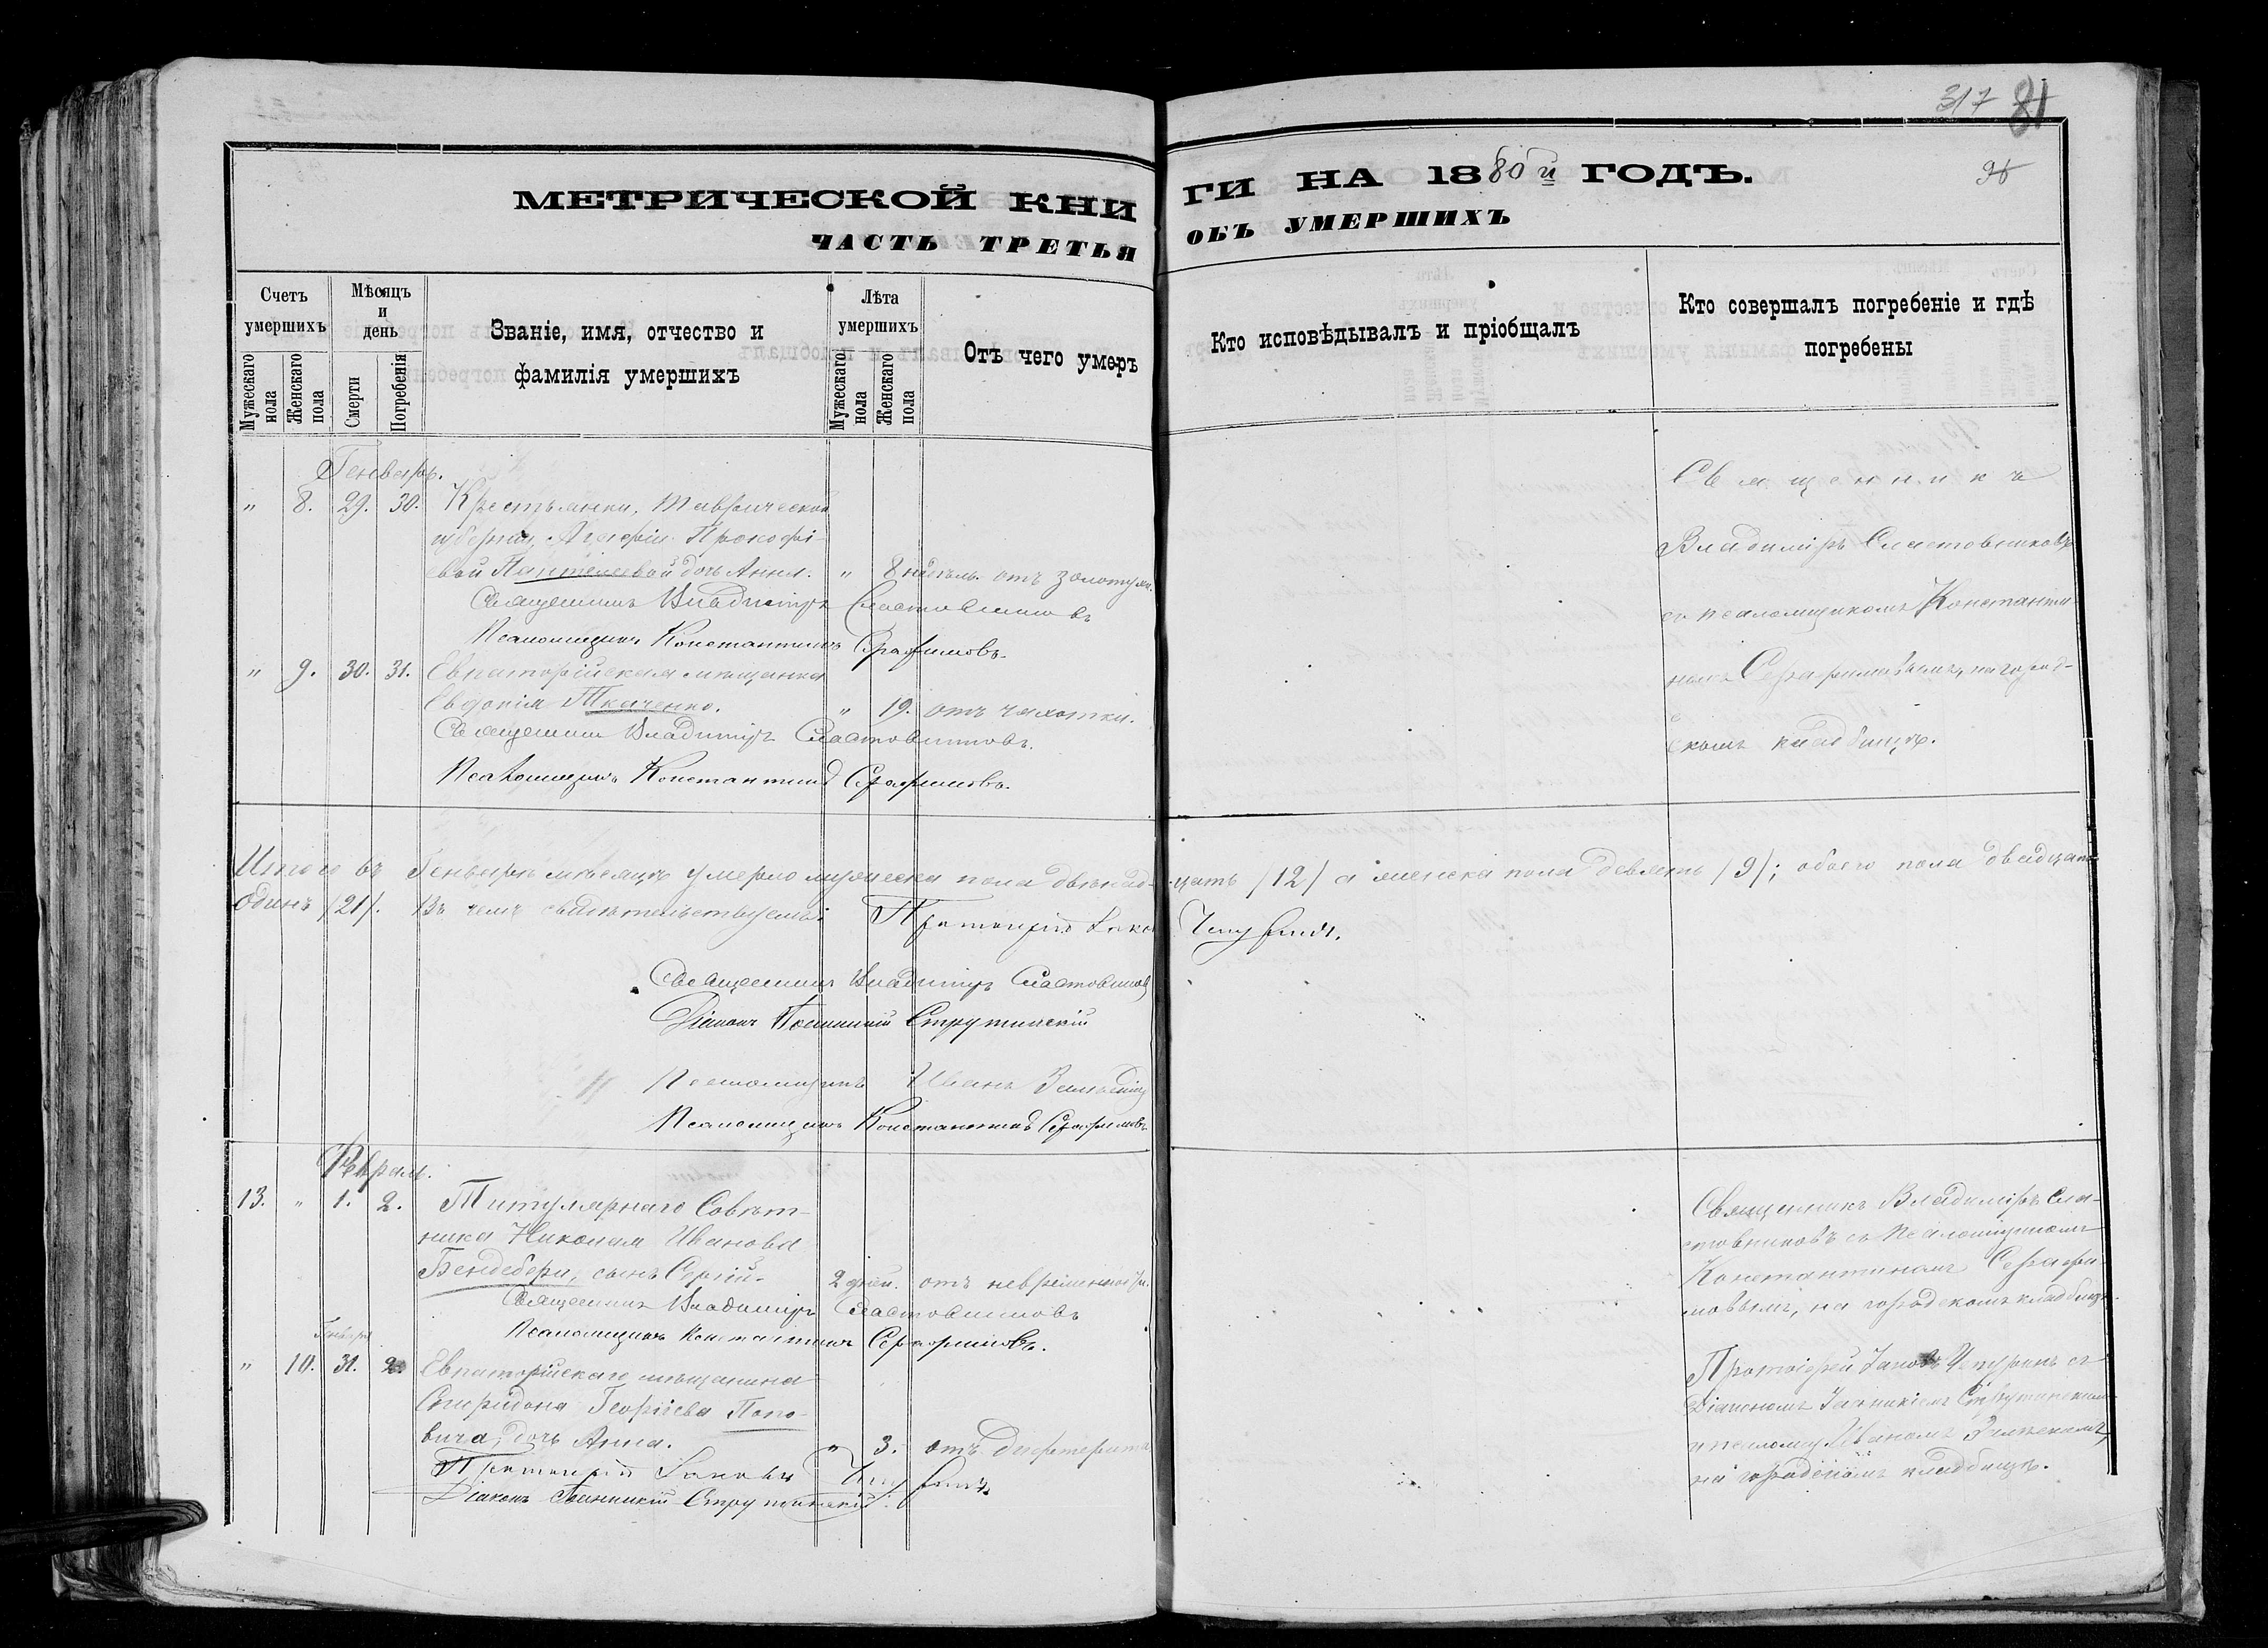 317 81
96
МЕТРИЧЕСКОЙ КНИГИ НА 1880й ГОДЪ.
ЧАСТЬ ТРЕТЬЯ ОБЪ УМЕРШИХЪ
Счетъ умершихъ
Мужескаго пола
Женскаго пола
Мѣсяцъ и день
Смерти
Погребенія
Званіе, имя, отчество и фамилія умершихъ
Лѣта умершихъ
Мужескаго пола
Женскаго пола
Отъ чего умеръ
Кто исповѣдывалъ и пріобщалъ
Кто совершалъ погребеніе и гдѣ погребены
Генварь.
" 8. 29. 30. Крестьянки, Таврической
губерніи, Прокофі-
евой Пантелеевой дочь Анна. " 8 недѣль. отъ золотухи.
Священникъ Владиміръ Сластовниковъ
Псаломщикъ Константинъ Серафимовъ.
Священникъ
Владиміръ Сластовниковъ
съ псаломщикомъ Константи-
номъ Серафимовымъ, на город-
скомъ кладбищѣ.
" 9. 30. 31. Евпаторійская мѣщанка
Евдокія Ткаченко. " 19. отъ чахотки.
Священникъ Владиміръ Сластовниковъ.
Псаломщикъ Константинъ Серафимовъ.
Итого въ Генварѣ мѣсяцѣ умерло мужеска пола двѣнадцать /12/ а женска пола девять /9/; обоего пола двадцать
одинъ /21/. Въ чемъ свидѣтельствуемъ: Протоіерей Іаковъ Чепуринъ.
Священникъ Владиміръ Сластовниковъ
Діаконъ Іоанникій Струтинскій
Псаломщикъ Иванъ
Псаломщикъ Константинъ Серафимовъ
Февраль.
13. " 1. 2. Титулярнаго Совѣт-
ника Николая Иванова
Бендебери, сынъ Сергій. 2 дней. отъ
Священникъ Владиміръ Сластовниковъ
Псаломщикъ Константинъ Серафимовъ.
Священникъ Владиміръ Сла-
стовниковъ съ Псаломщикомъ
Константиномъ Серафи-
мовымъ, на городскомъ кладбищѣ.
Генваря
" 10. 31. 2. Евпаторійскаго мѣщанина
Спиридона Георгіева Попо-
вича, дочь Анна. " 3. отъ дифтерита
Протоіерей Іаковъ Чепуринъ.
Діаконъ Іоанникій Струтинскій.
Протоіерей Іаковъ Чепуринъ съ
Діакономъ Іоанникіемъ Струтинскимъ
и псаломщ. Иваномъ
на городскомъ кладбищѣ.